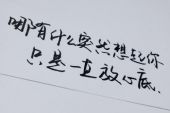 哪有什么突然想起你
只是一直放心底.